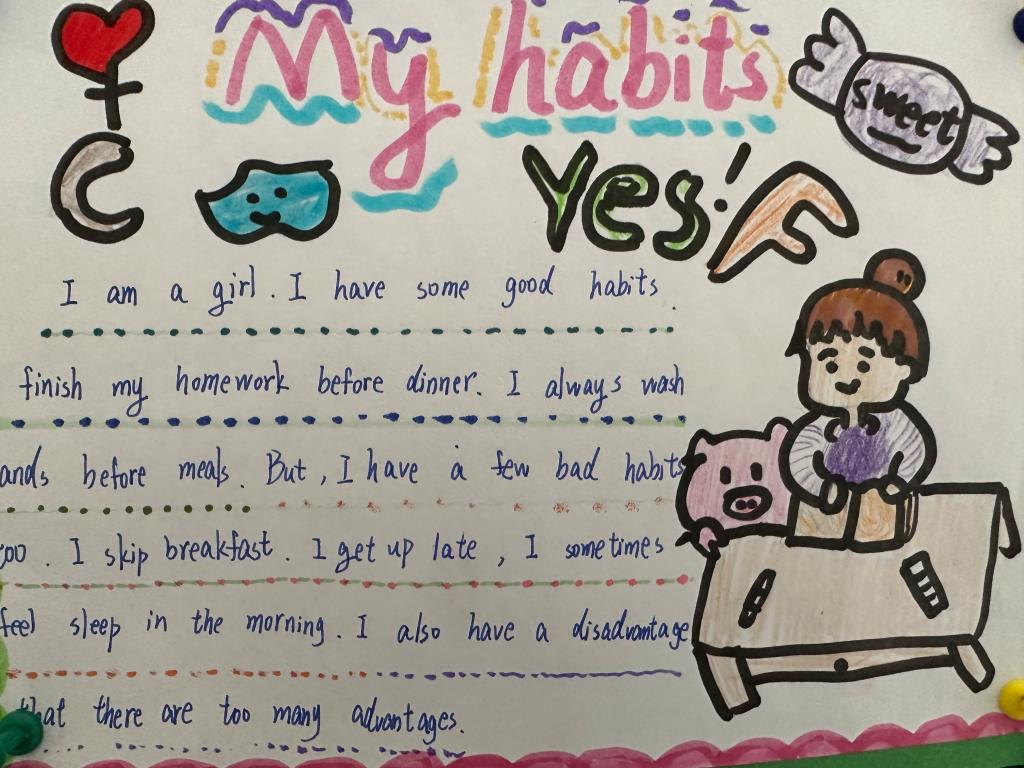 My habits
sweet
Yes!
I am a girl. I have some good habits.
finish my homework before dinner. I always wash
ands before meals. But, I have a few bad habits
too. I skip breakfast. I get up late, I sometimes
feel sleep in the morning. I also have a disadvantage
that there are too many advantages.